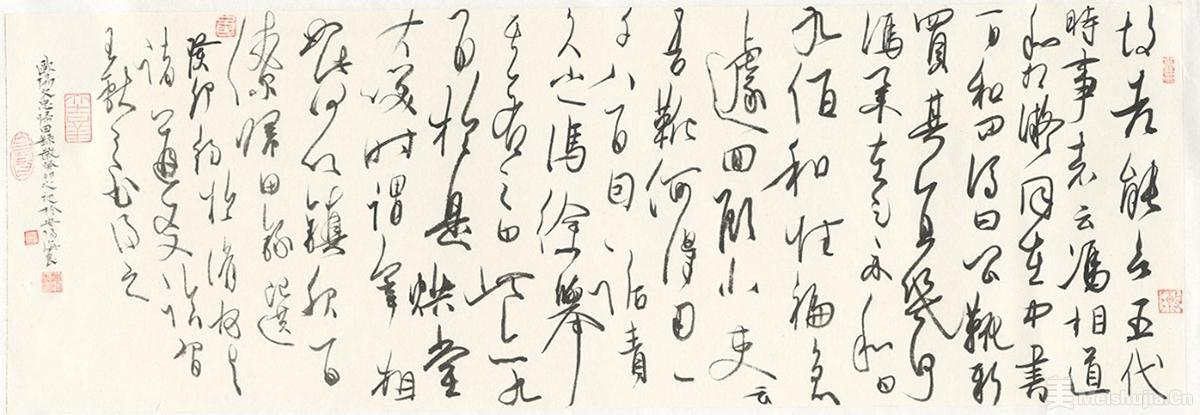 故老能言五代
時事者云馮相道
和相凝同在中書
一日和問馮曰公靴新
買其直幾何
馮舉左足示和曰
九佰和性褊急
遽回顧小吏云
吾靴何得用一
千八百因詬責
久之馮徐舉
其右足曰此亦九
百於是烘堂
大笑時謂宰相
如此何以鎮服百
僚歸田錄
癸卯初
歐陽文忠歸田錄
美 Meishujia.Cn